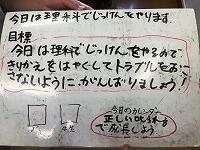 今日は理科でじっけんをやります。
目標
今日は理科でじっけんをやるので
きりかえをはやくしてトラブルをおこ
さないように、がんばりましょう!
今月のカレンダー
正しい
で成長しよう。